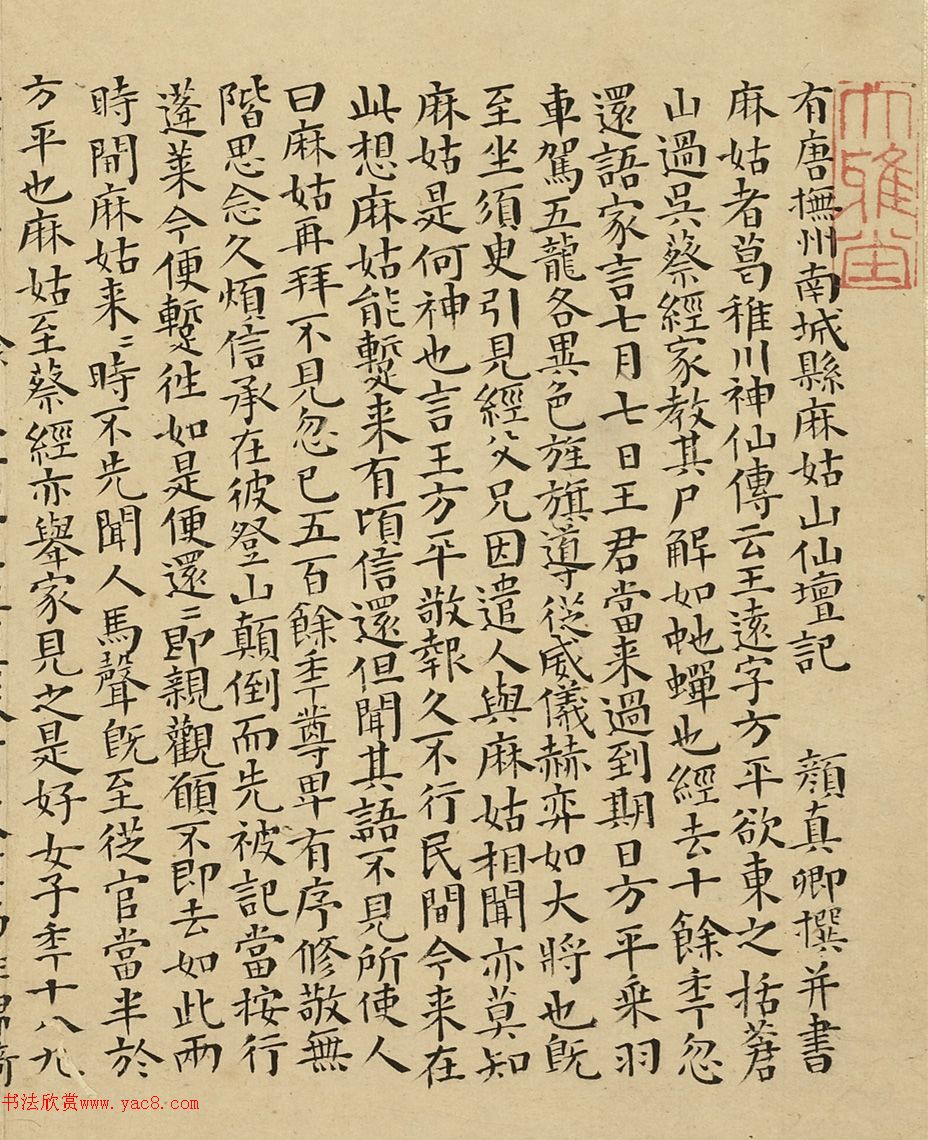 有唐撫州南城縣麻姑山仙壇記 顏真卿撰并書
麻姑者葛稚川神仙傳云王遠字方平欲東之括蒼
山過吳蔡經家教其尸解如虵蟬也經去十餘秊忽
還語家言七月七日王君當来過到期日方平乘羽
車駕五龍各異色旌旗導從威儀赫弈如大將也既
至坐須臾引見經父兄因遣人與麻姑相聞亦莫知
麻姑是何神也言王方平敬報久不行民間今来在
此想麻姑能蹔来有頃信還但聞其語不見所使人
曰麻姑再拜不見忽已五百餘秊尊卑有序修敬無
階思念久煩信承在彼登山顛倒而先被記當按行
蓬萊今便蹔往如是便還〻即親觀願不即去如此兩
時間麻姑来〻時不先聞人馬聲既至從官當半於
方平也麻姑至蔡經亦舉家見之是好女子秊十八九
大雅堂
书法欣赏www.yac8.com